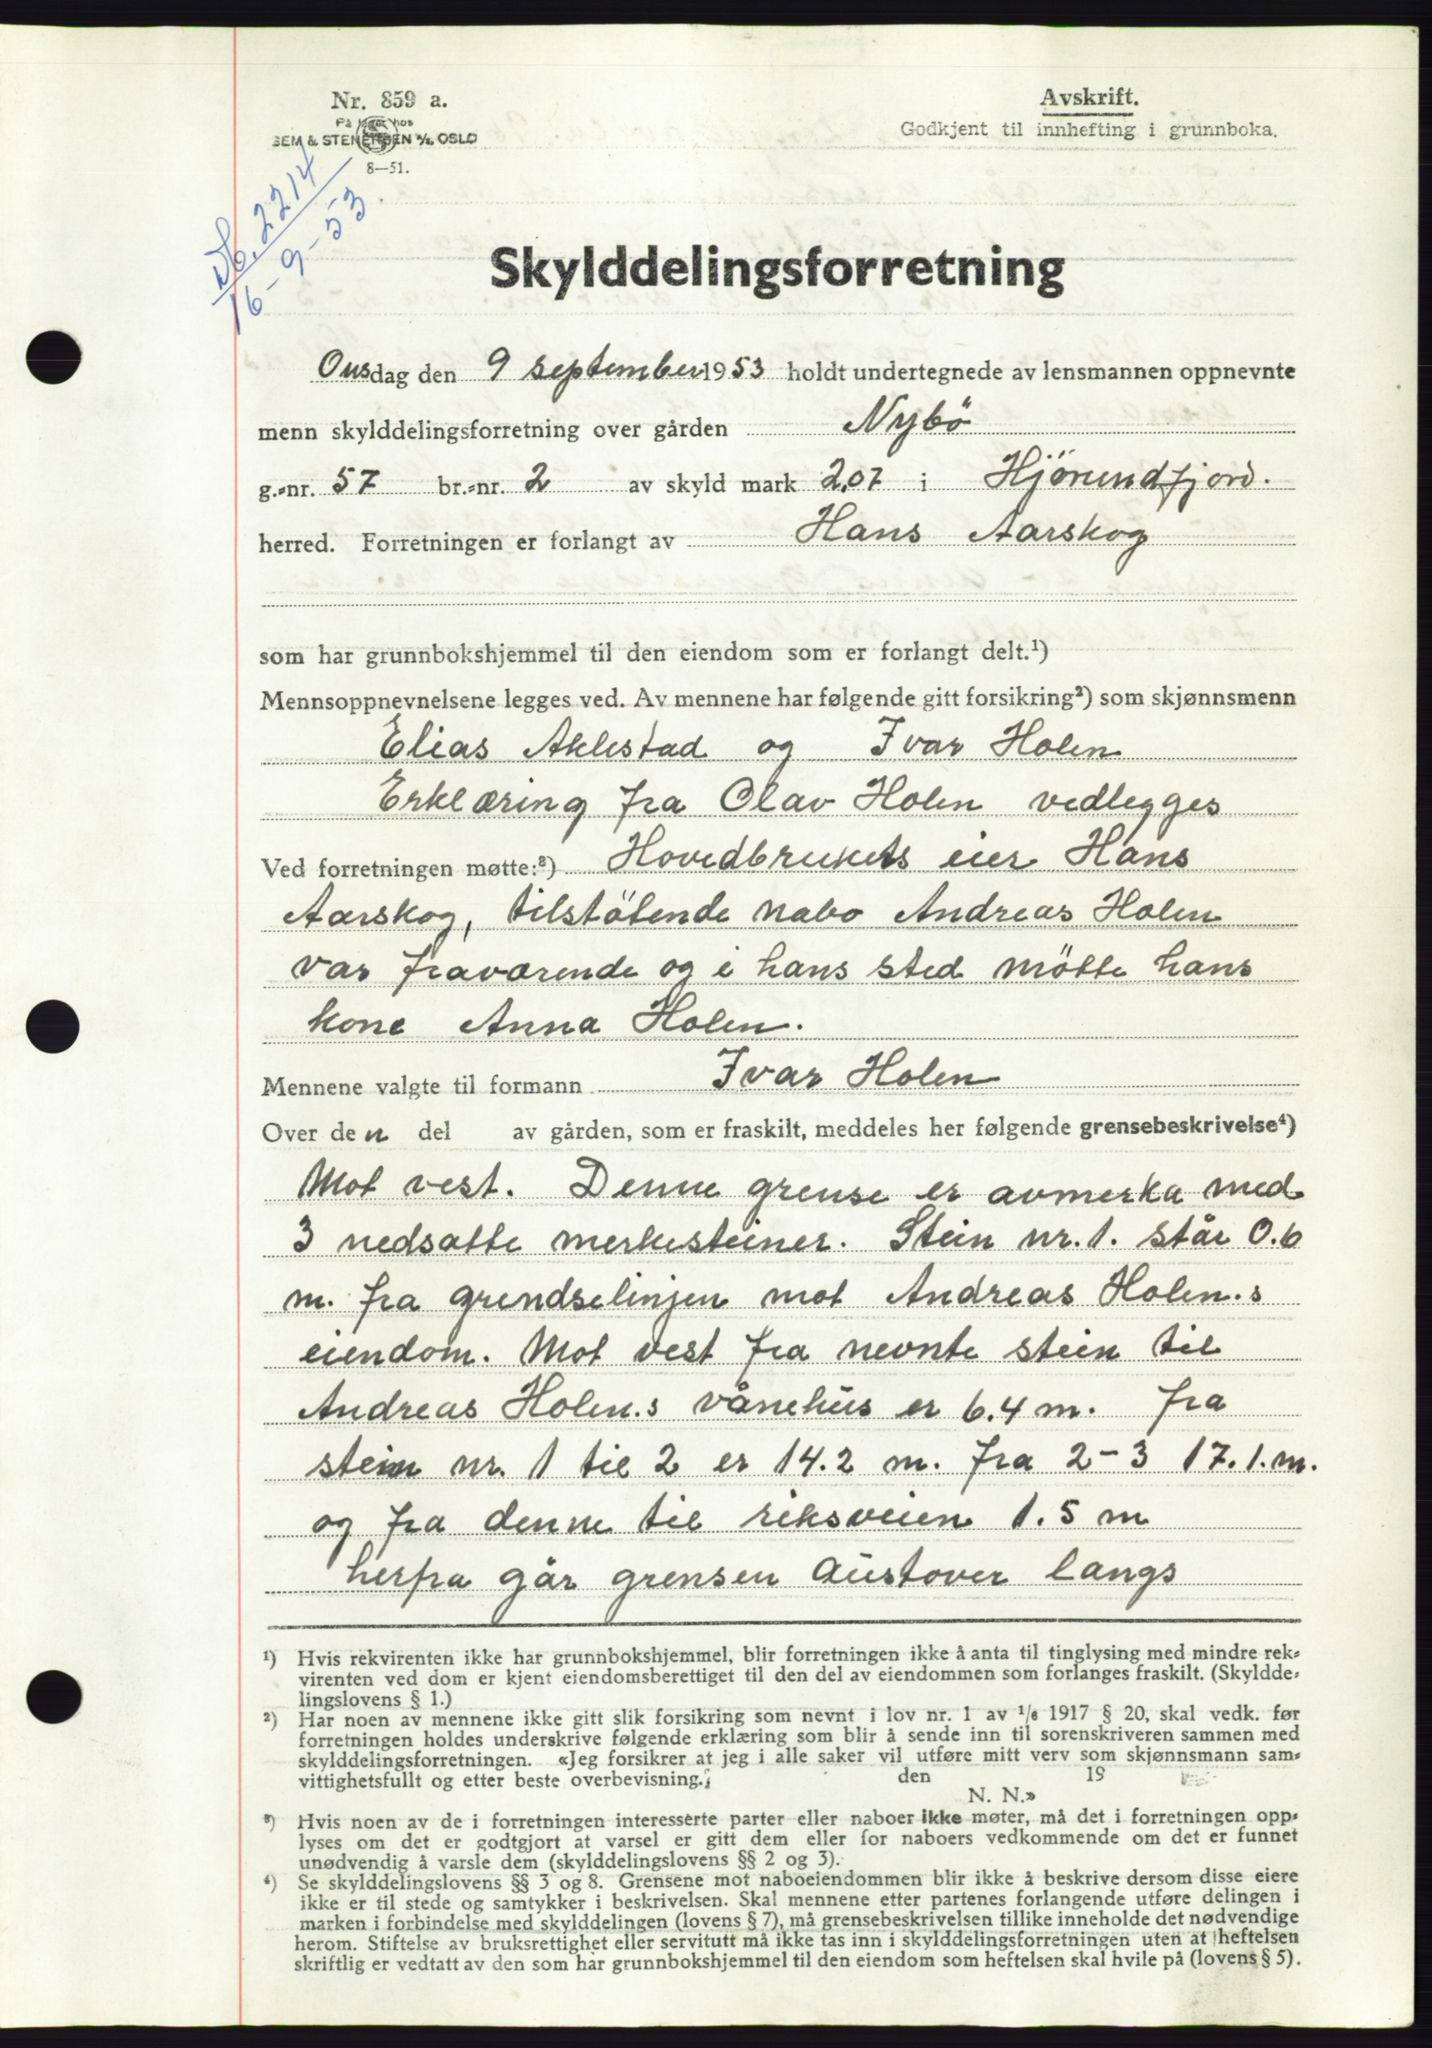 Nr. 859 a.
På lager hos
SEM & STENERSEN A/S OSLO
8—51.
Avskrift.
Godkjent til innhefting i grunnboka.
No. 2214
16-9-53.
Skylddelingsforretning
Onsdag den 9 september 1953 holdt undertegnede av lensmannen oppnevnte
menn skylddelingsforretning over gården Nybö
g.-nr. 57 br.-nr. 2 av skyld mark 2,07 i Hjörundfjord.
herred. Forretningen er forlangt av Hans Aarskog
som har grunnbokshjemmel til den eiendom som er forlangt delt.¹)
Mennsoppnevnelsene legges ved. Av mennene har følgende gitt forsikring²) som skjønnsmenn
Elias Aklestad og Ivar Holen
Erklæring fra Olav Holen vedlegges
Ved forretningen møtte:³) Hovedbrukets eier Hans
Aarskog, tilstötende nabo Andreas Holen
var fraværende og i hans sted mötte hans
kone Anna Holen.
Mennene valgte til formann Ivar Holen
Over den del av gården, som er fraskilt, meddeles her følgende grensebeskrivelse⁴)
Mot vest. Denne grense er avmerka med
3 nedsatte merkesteiner. Stein nr. 1. står 0.6
m. fra grendselinjen mot Andreas Holen.s
eiendom. Mot vest fra nevnte stein til
Andreas Holen.s vånehus er 6.4 m. fra
stein nr. 1 til 2 er 14.2 m. fra 2-3 17.1.m.
og fra denne til riksveien 1.5 m
herfra går grensen austover langs
¹) Hvis rekvirenten ikke har grunnbokshjemmel, blir forretningen ikke å anta til tinglysing med mindre rek-
virenten ved dom er kjent eiendomsberettiget til den del av eiendommen som forlanges fraskilt. (Skyldde-
lingslovens § 1.)
²) Har noen av mennene ikke gitt slik forsikring som nevnt i lov nr. 1 av 1/6 1917 § 20, skal vedk. før
forretningen holdes underskrive følgende erklæring som blir å sende inn til sorenskriveren sammen med
skylddelingsforretningen. «Jeg forsikrer at jeg i alle saker vil utføre mitt verv som skjønnsmann sam-
vittighetsfullt og etter beste overbevisning. den 19
N. N.»
³) Hvis noen av de i forretningen interesserte parter eller naboer ikke møter, må det i forretningen opp-
lyses om det er godtgjort at varsel er gitt dem eller for naboers vedkommende om det er funnet
unødvendig å varsle dem (skylddelingslovens §§ 2 og 3).
⁴) Se skylddelingslovens §§ 3 og 8. Grensene mot naboeiendommen blir ikke å beskrive dersom disse eiere
ikke er til stede og samtykker i beskrivelsen. Skal mennene etter partenes forlangende utføre delingen i
marken i forbindelse med skylddelingen (lovens § 7), må grensebeskrivelsen tillike inneholde det nødvendige
herom. Stiftelse av bruksrettighet eller servitutt må ikke tas inn i skylddelingsforretningen uten at heftelsen
skriftlig er vedtatt av den som har grunnbokshjemmel til den eiendom som heftelsen skal hvile på (lovens § 5).